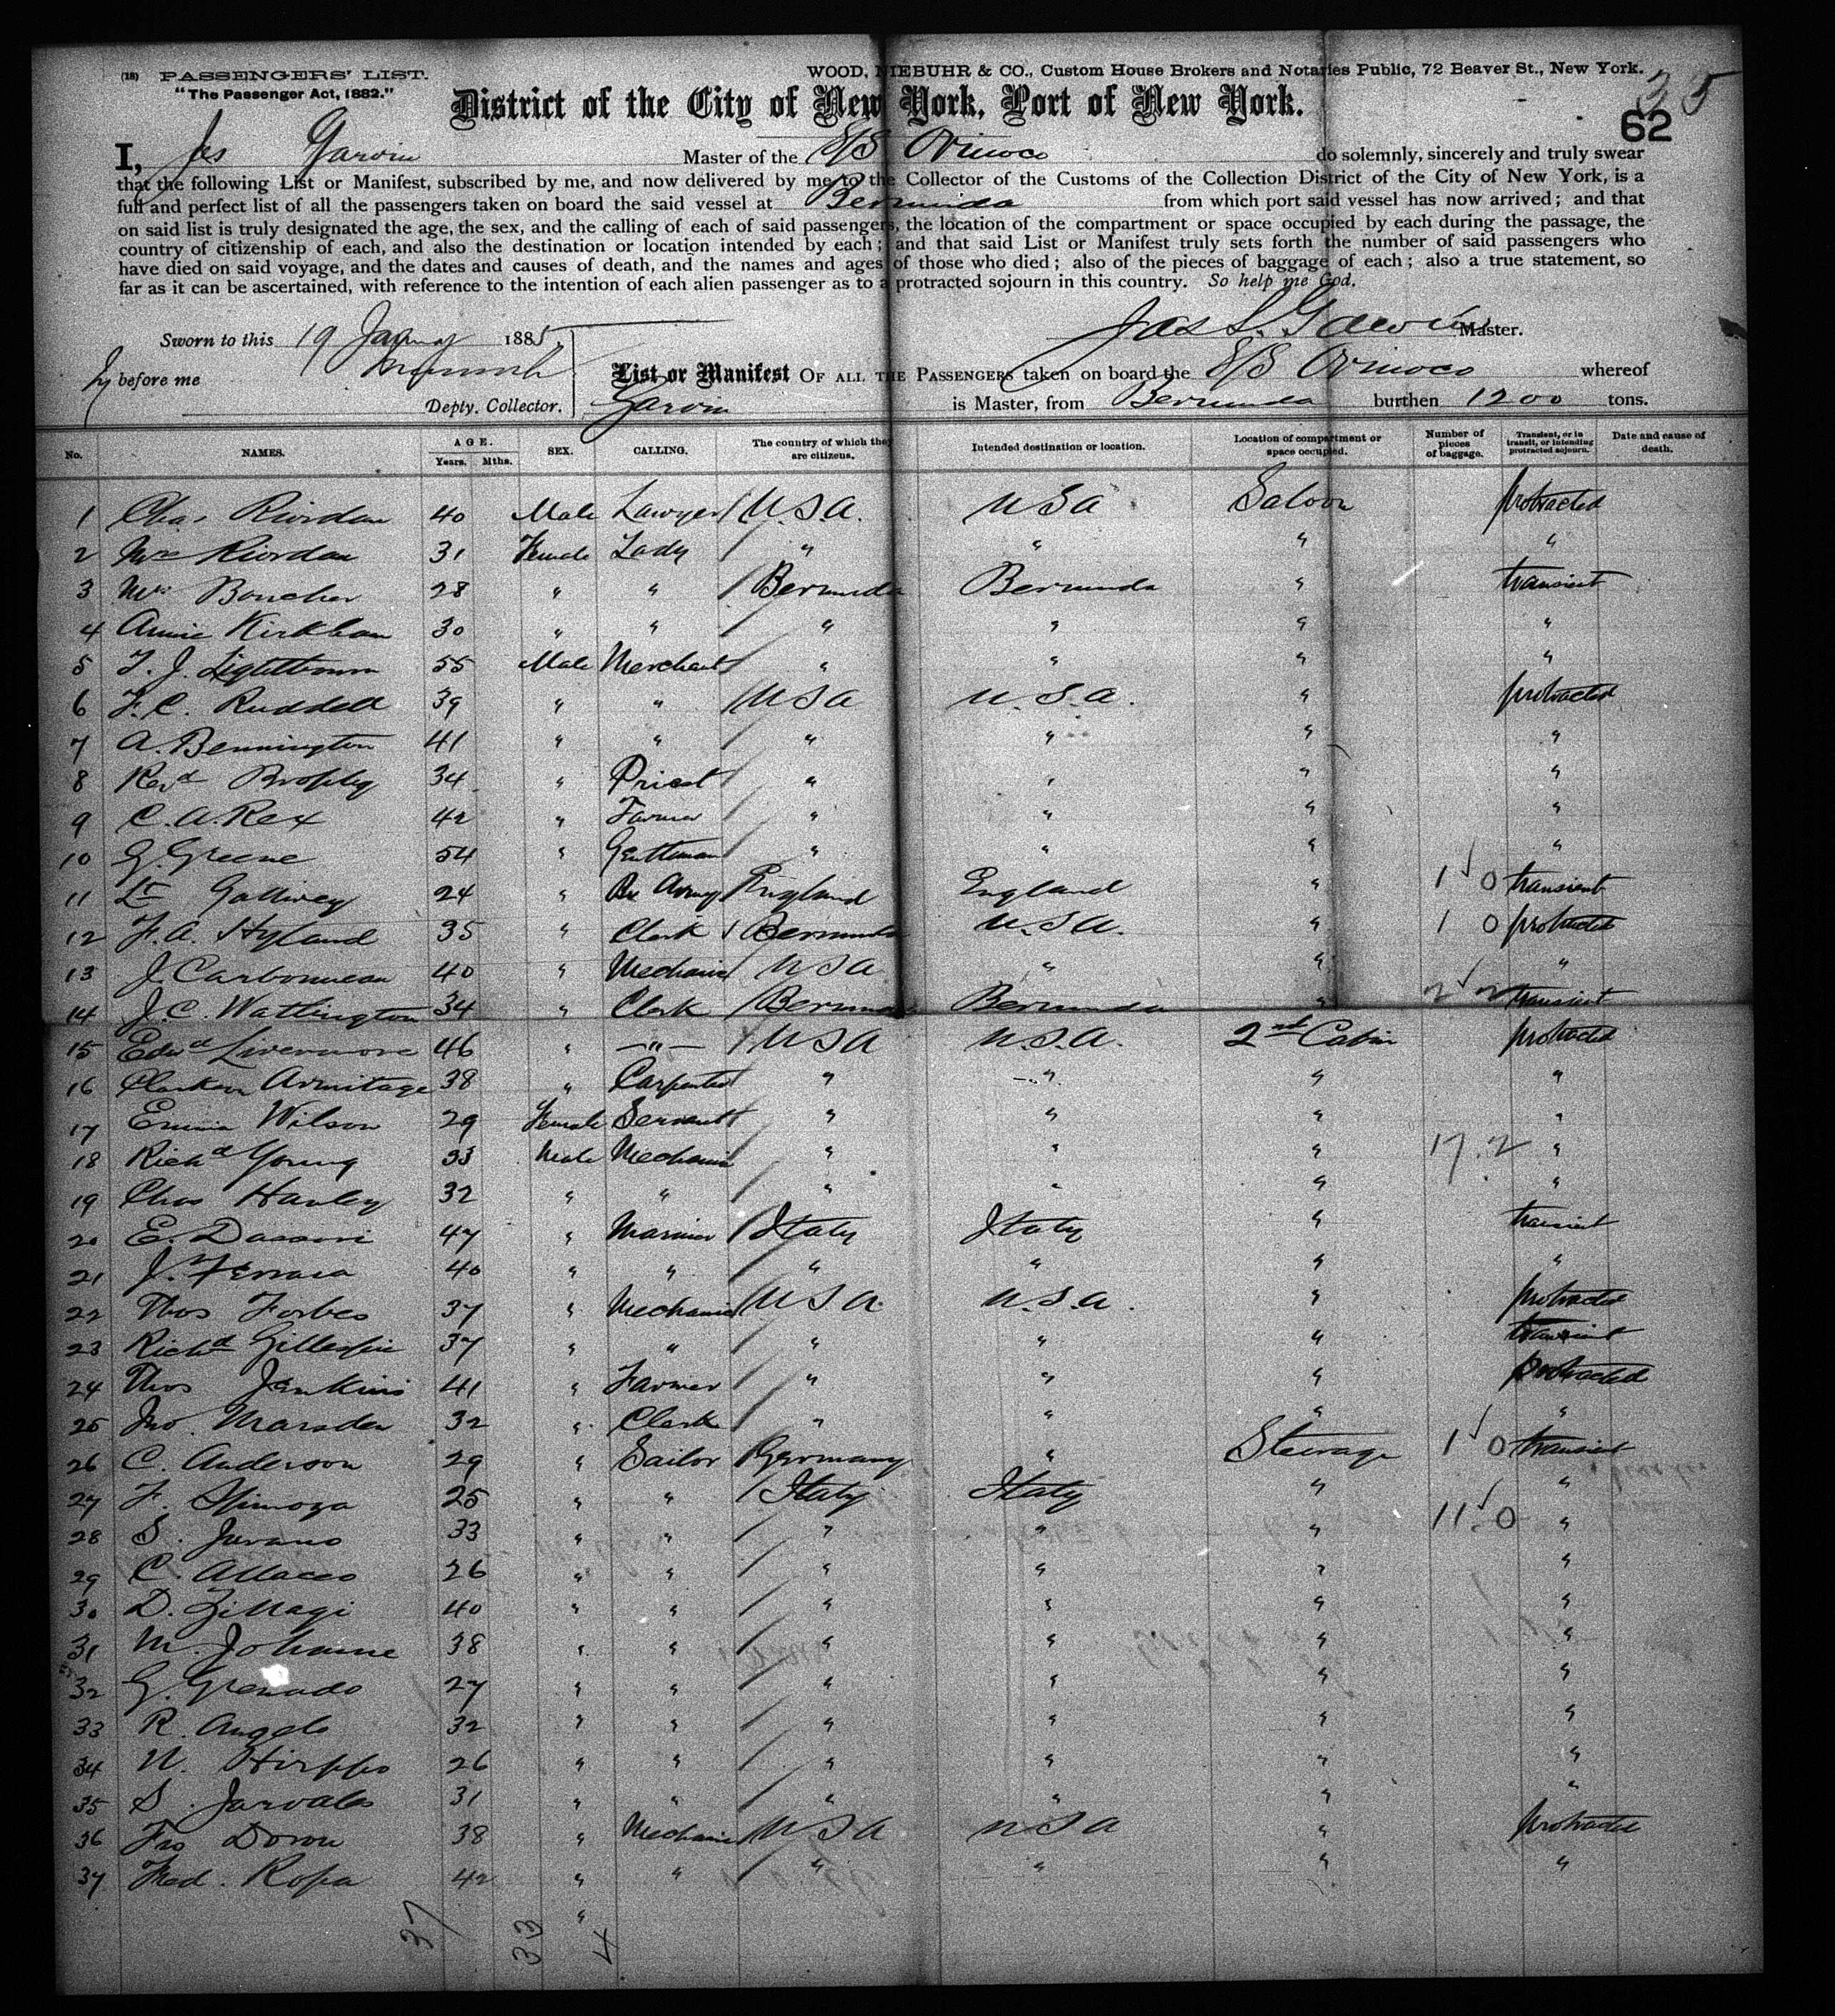 (18) PASSENGERS' LIST. WOOD, NIEBUHR & CO., Custom House Brokers and Notaries Public, 72 Beaver St., New York.
"The Passenger Act, 1882." 35
District of the City of New York, Port of New York. 62
I, Jas Garvin Master of the S/S Orinoco do solemnly, sincerely and truly swear
that the following List or Manifest, subscribed by me, and now delivered by me to the Collector of the Customs of the Collection District of the City of New York, is a
full and perfect list of all the passengers taken on board the said vessel at Bermuda from which port said vessel has now arrived; and that
on said list is truly designated the age, the sex, and the calling of each of said passengers, the location of the compartment or space occupied by each during the passage, the
country of citizenship of each, and also the destination or location intended by each; and that said List or Manifest truly sets forth the number of said passengers who
have died on said voyage, and the dates and causes of death, and the names and ages of those who died; also of the pieces of baggage of each; also a true statement, so
far as it can be ascertained, with reference to the intention of each alien passenger as to a protracted sojourn in this country. So help me God.
Sworn to this 19 January 1885 Jas L. Garvin Master.
before me List or Manifest OF ALL THE PASSENGERS taken on board the S/S Orinoco whereof
Depty. Collector. Garvin is Master, from Bermuda burthen 1200 tons.
No. NAMES. AGE. Years. Mths. SEX. CALLING. The country of which they are citizens. Intended destination or location. Location of compartment or space occupied. Number of pieces of baggage. Transient, or in transit, or intending protracted sojourn. Date and cause of death.
1 Chas Riordan 40 Male Lawyer U.S.A. USA Saloon protracted
2 Mrs Riordan 31 Female Lady " " " "
3 Mrs Boucher 28 " " Bermuda Bermuda " transient
4 Annie Kirkham 30 " " " " " "
5 T. J. Lightbourn 55 Male Merchant " " " "
6 F. C. Ruddell 39 " " USA U.S.A. " protracted
7 A. Bennington 41 " " " " " "
8 Revd Brophy 34 " Priest " " " "
9 C. A. Rex 42 " Farmer " " " "
10 G. Greene 54 " Gentleman " " " "
11 Lt Gallwey 24 " Army England England " 1 0 transient
12 F. A. Hyland 35 " Clerk Bermuda U.S.A. " 1 0 protracted
13 J. Carbonneau 40 " Mechanic USA " " "
14 J. C. Watlington 34 " Clerk Bermuda Bermuda " 2 2 transient
15 Edwd Livermore 46 " " USA U.S.A. 2nd Cabin protracted
16 Clarkson Armitage 38 " Carpenter " " " "
17 Emma Wilson 29 Female Servant " " " "
18 Richd Young 33 Male Mechanic " " " 17.2 "
19 Chas Hanley 32 " " " " " "
20 E. Dassori 47 " Mariner Italy Italy " transient
21 J. Ferrara 40 " " " " " "
22 Thos Forbes 37 " Mechanic USA U.S.A. " protracted
23 Richd Gillespie 37 " " " " " transient
24 Thos Jenkins 41 " Farmer " " " protracted
25 Jno. Marsden 32 " Clerk " " " "
26 C. Anderson 29 " Sailor Germany " Steerage 1 0 transient
27 F. Spinoza 25 " " Italy Italy " "
28 S. Jurano 33 " " " " " 11.0 "
29 C. Allaceo 26 " " " " " "
30 D. Zillagi 40 " " " " " "
31 M. Johanne 38 " " " " " "
32 G. Grenado 27 " " " " " "
33 R. Angelo 32 " " " " " "
34 N. Hirppo 26 " " " " " "
35 S. Jarvalo 31 " " " " " "
36 Fro Doron 38 " Mechanic USA USA " protracted
37 Fred. Ropa 42 " " " " " "
"
37 33 4